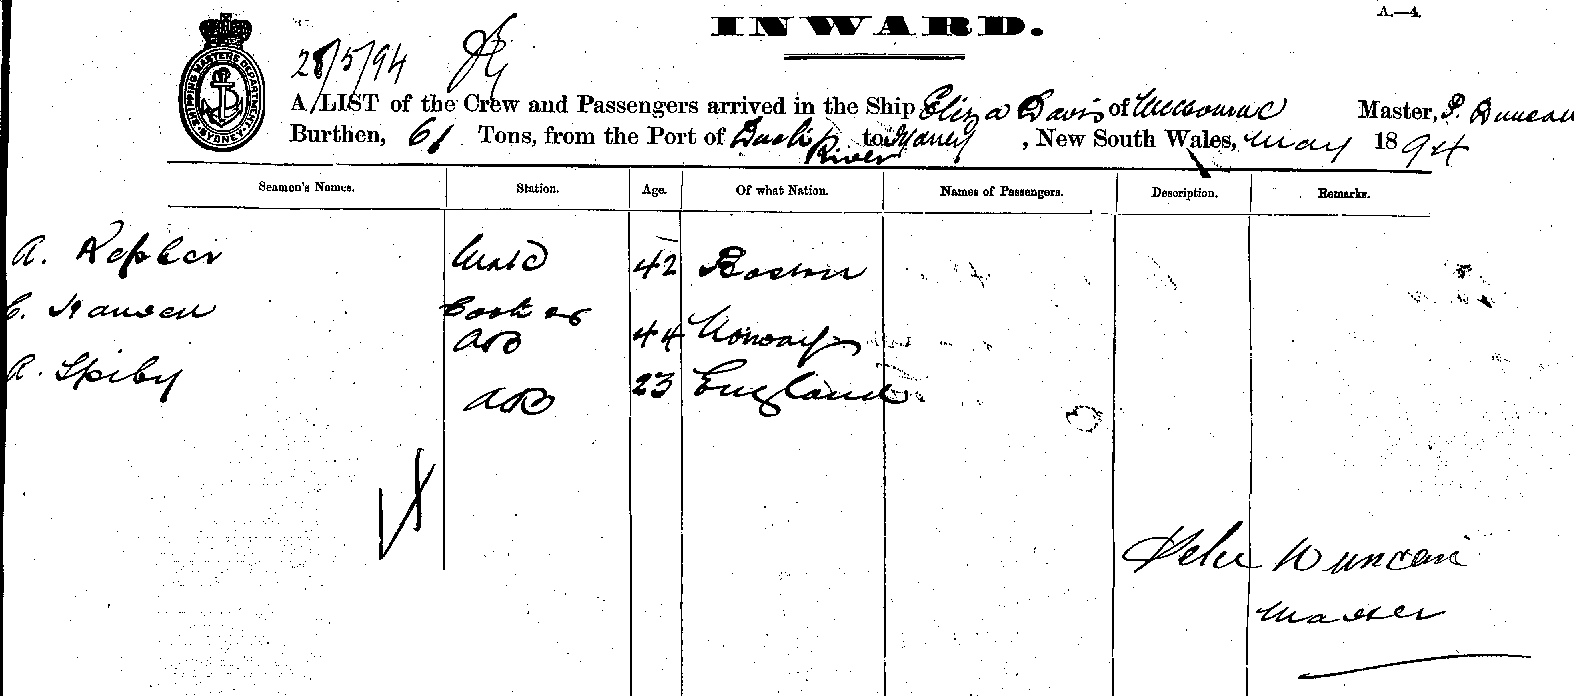 INWARD.
A.—4.
SHIPPING MASTERS DEPARTMENT SYDNEY
28/5/94
A LIST of the Crew and Passengers arrived in the Ship Eliza Davis of Melbourne Master, P. Duncan
Burthen, 61 Tons, from the Port of River to Sydney, New South Wales, May 1894
Seamen's Names. Station. Age. Of what Nation. Names of Passengers. Description. Remarks.
A. Kepler Mate 42 Boston
C. Hansen Cook &
AB 44 Norway
A. Spiby AB 23 England
Peter Duncan
Master